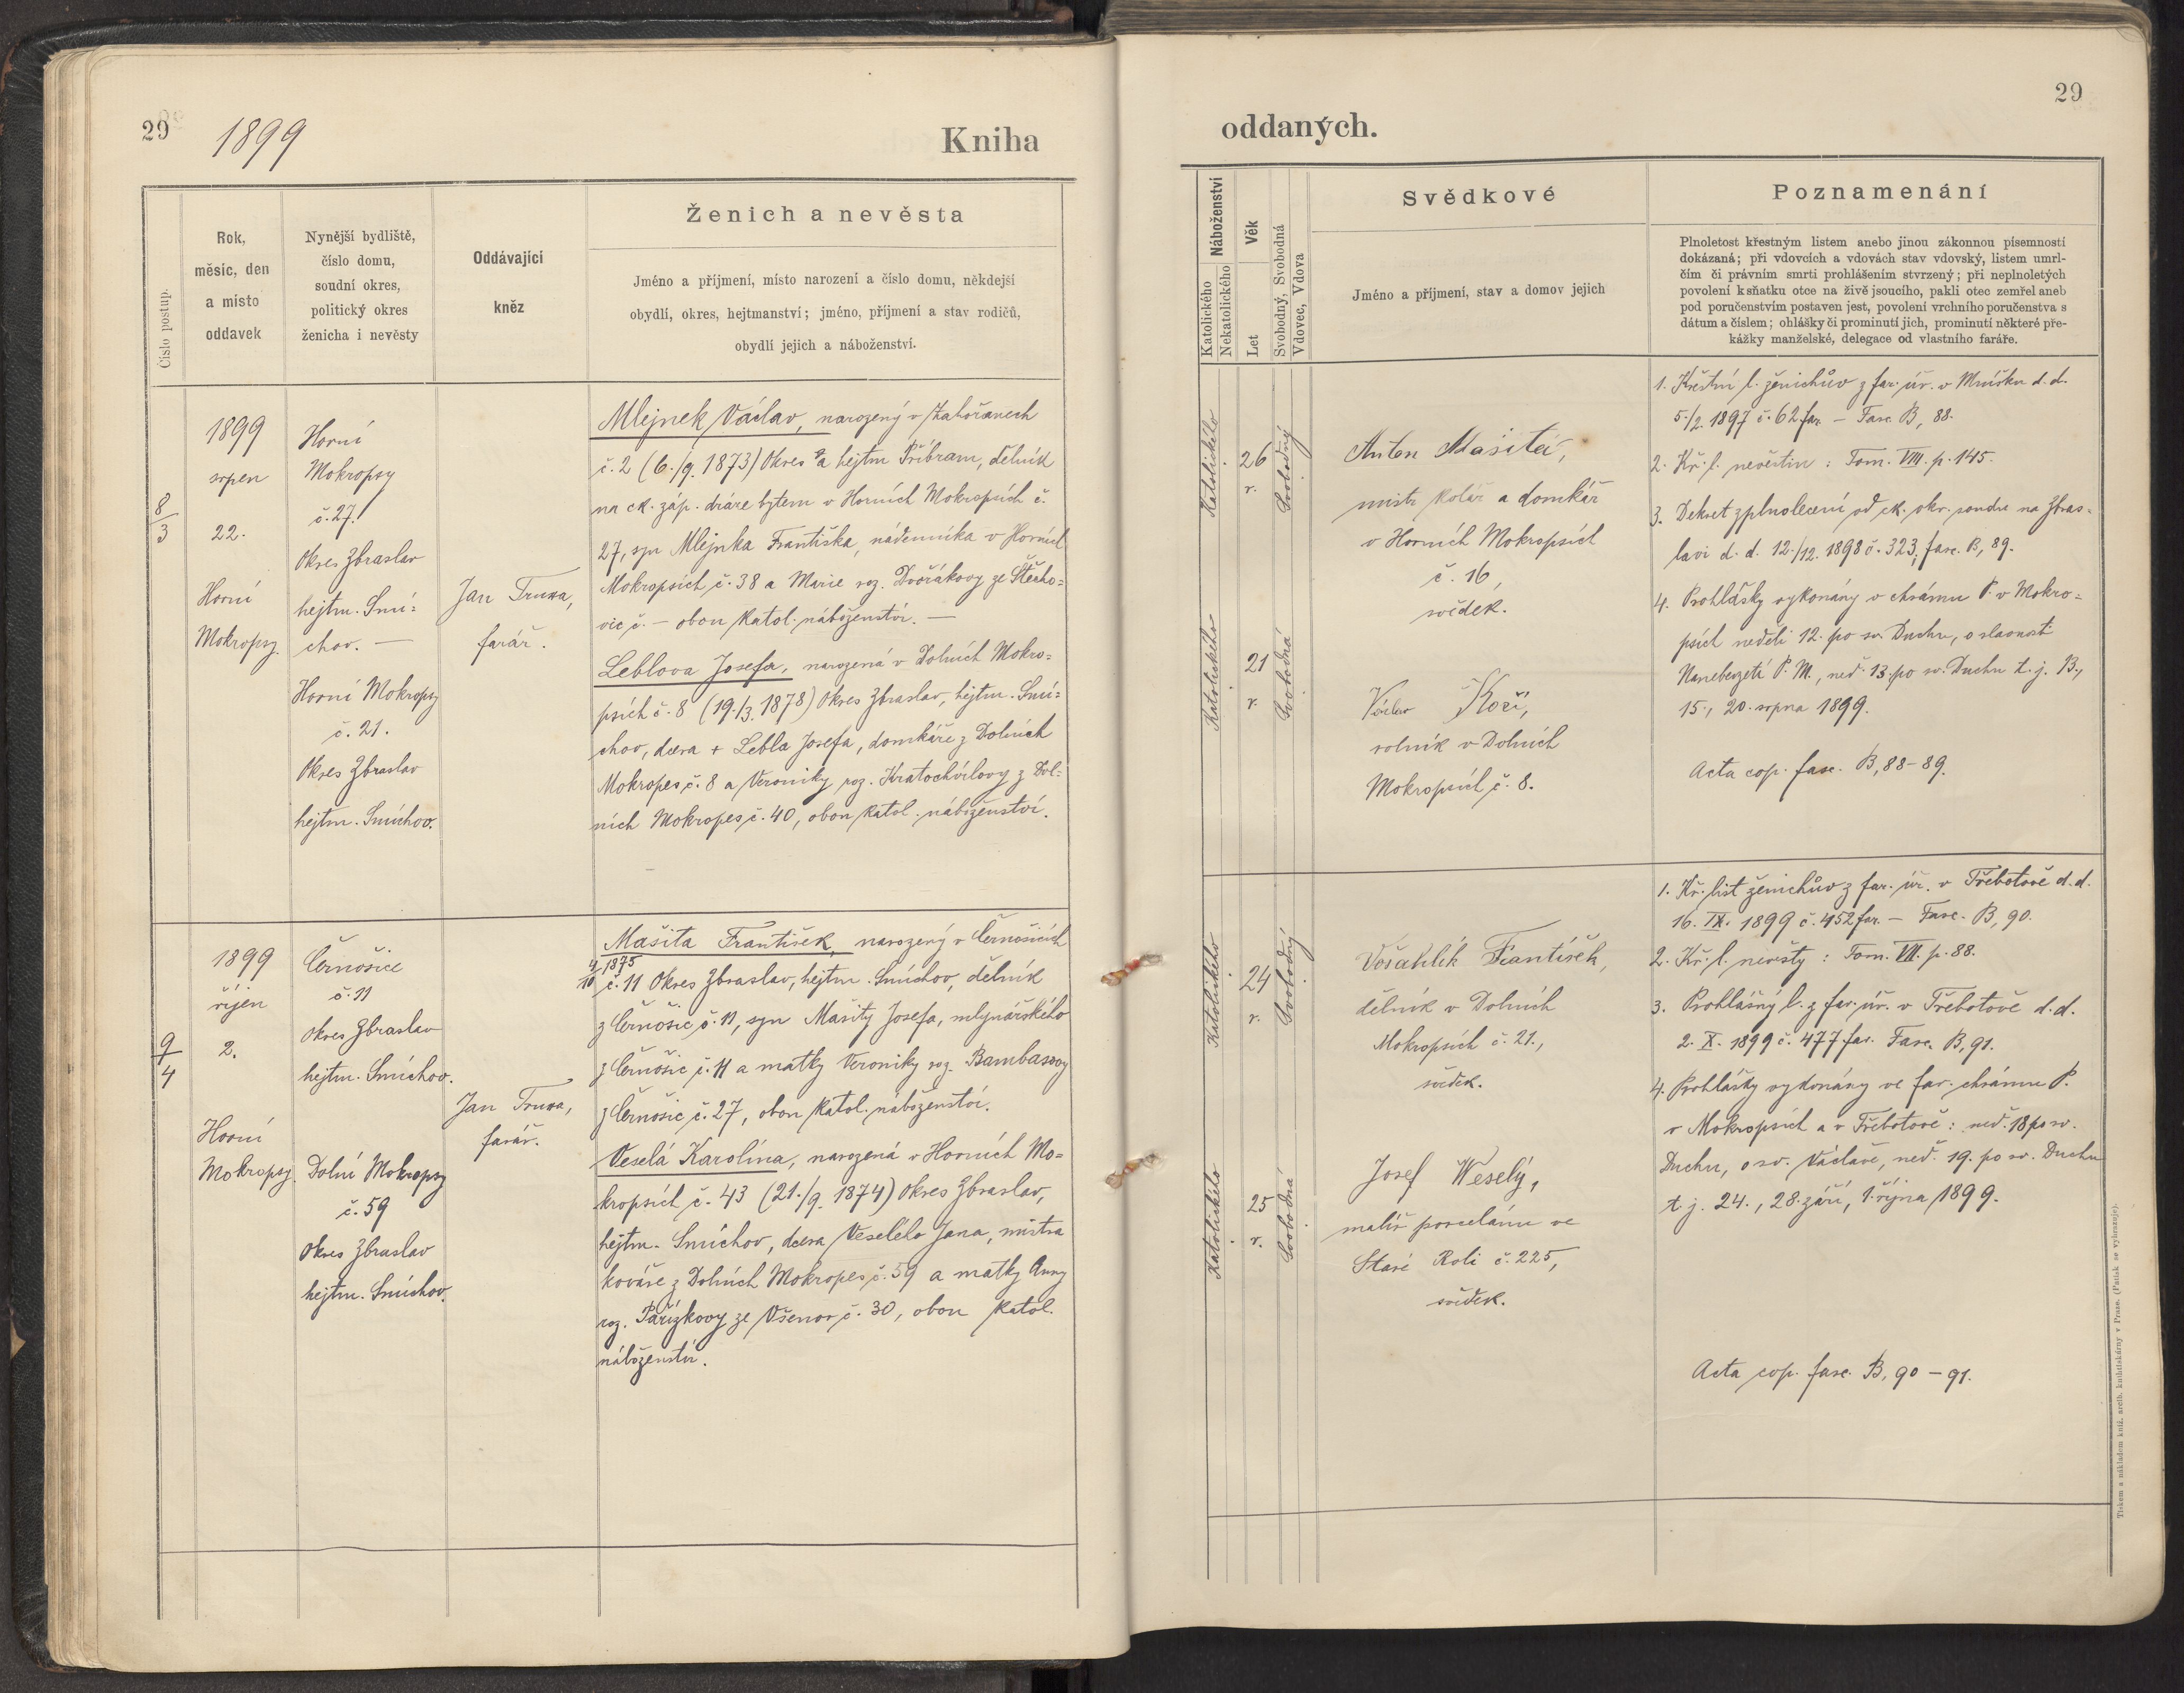 29
1899
Kniha
Číslo postup.
Rok,
měsíc, den
a místo
oddavek
Nynější bydliště,
číslo domu,
soudní okres,
politický okres
ženicha i nevěsty
Oddávající
kněz
Ženich a nevěsta
Jméno a příjmení, místo narození a číslo domu, někdejší
obydlí, okres, hejtmanství; jméno, příjmení a stav rodičů,
obydlí jejich a náboženství.
8
3
1899
srpen
22.
Horní
Mokropsy.
Horní
Mokropsy
č. 27.
Okres Zbraslav
hejtm. Smí-
chov. —
Horní Mokropsy
č. 21.
Okres Zbraslav
hejtm. Smíchov.
Jan Truxa,
farář.
Mlejnek Václav, narozený v Zahořanech
č. 2 (6./9. 1873) Okres a hejtm Příbram, dělník
na ck. záp. dráze bytem v Horních Mokropsích č.
27, syn Mlejnka Františka, nádenníka v Horních
Mokropsích č. 38 a Marie roz. Dvořákovy ze Štěcho-
vic č. — obou katol. náboženství. —
Leblova Josefa, narozená v Dolních Mokro-
psích č. 8 (19./3. 1878) Okres Zbraslav, hejtm. Smí-
chov, dcera + Lebla Josefa, domkáře z Dolních
Mokropes č. 8 a Veroniky, roz. Kratochvílovy z Dol-
ních Mokropes č. 40, obou katol. náboženství.
9
4
1899
říjen
2.
Horní
Mokropsy.
Černošice
č. 11
Okres Zbraslav
hejtm. Smíchov.
Dolní Mokropsy
č. 59
Okres Zbraslav
hejtm. Smíchov.
Jan Truxa,
farář.
Mašita František, narozený v Černošicích
4/10 1875
č. 11 Okres Zbraslav, hejtm. Smíchov, dělník
z Černošic č. 11, syn Mašity Josefa, mlynářského
z Černošic č. 11 a matky Veroniky roz. Bambasovy
z Černošic č. 27, obou katol. náboženství.
Veselá Karolína, narozená v Horních Mo-
kropsích č. 43 (21./9. 1874) Okres Zbraslav,
hejtm. Smíchov, dcera Veselého Jana, mistra
kováře z Dolních Mokropes č. 59 a matky Anny
roz. Pařízkovy ze Všenor č. 30, obou katol.
náboženství.
29
oddaných.
Náboženství
Katolického
Nekatolického
Věk
Let
Svobodný, Svobodná
Vdovec, Vdova
Svědkové
Jméno a příjmení, stav a domov jejich
Poznamenání
Plnoletost křestným listem anebo jinou zákonnou písemností
dokázaná; při vdovcích a vdovách stav vdovský, listem umrl-
čím či právním smrti prohlášením stvrzený; při neplnoletých
povolení k sňatku otce na živě jsoucího, pakli otec zemřel aneb
pod poručenstvím postaven jest, povolení vrchního poručenstva s
dátum a číslem; ohlášky či prominutí jich, prominutí některé pře-
kážky manželské, delegace od vlastního faráře.
Katolického
26
r.
Svobodný
Katolického
21
r.
Svobodná
Anton Mašita,
mistr kolář a domkář
v Horních Mokropsích
č. 16,
svědek.
Václav Koří,
rolník v Dolních
Mokropsích č. 8.
1. Křestní l. ženichův z far. úř. v Mníšku d. d.
5./2. 1897 č. 62 far. — Fasc. B, 88.
2. Kř. l. nevěstin: Tom. VIII. p. 145.
3. Dekret zplnolecení od ck. okr. soudu na Zbras-
lavi d. d. 12./12. 1898 č. 323, fasc. B, 89.
4. Prohlášky vykonány v chrámu P. v Mokro-
psích neděli 12. po sv. Duchu, o slavnosti
Nanebevzetí P. M., ned. 13. po sv. Duchu t. j. 13.,
15., 20. srpna 1899.
Acta cop. fasc. B, 88-89.
Katolického
24
r.
Svobodný
Katolického
25
r.
Svobodná
Vošahlík František,
dělník v Dolních
Mokropsích č. 21.,
svědek.
Josef Weselý,
malíř porcelánu ve
Staré Roli č. 225,
svědek.
1. Kř. list ženichův z far. úř. v Třebotově d. d.
16. IX. 1899 č. 452 far. — Fasc. B, 90.
2. Kř. l. nevěsty: Tom. VII. p. 88.
3. Prohlášný l. z far. úř. v Třebotově d. d.
2. X. 1899 č. 477 far. Fasc. B, 91.
4. Prohlášky vykonány ve far. chrámu P.
v Mokropsích a v Třebotově: ned. 18 po sv.
Duchu, o sv. Václavě, ned. 19. po sv. Duchu
t. j. 24., 28. září, 1. října 1899.
Acta cop. fasc. B, 90-91.
Tiskem a nákladem kníž. arcib. knihtiskárny v Praze. (Patisk se vyhrazuje).